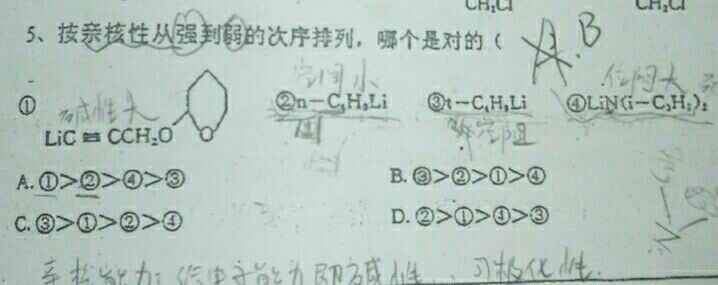 CH₂Cl CH₂Cl
5、按亲核性从强到弱的次序排列，哪个是对的（ A B
空间小 位阻大
① 碱性大 ②n-C₄H₉Li ③t-C₄H₉Li ④LiN(i-C₃H₇)₂
LiC≡CCH₂O O
A.①>②>④>③ B.③>②>①>④
C.③>①>②>④ D.②>①>④>③
亲核能力：给电子能力即碱性、可极化性.